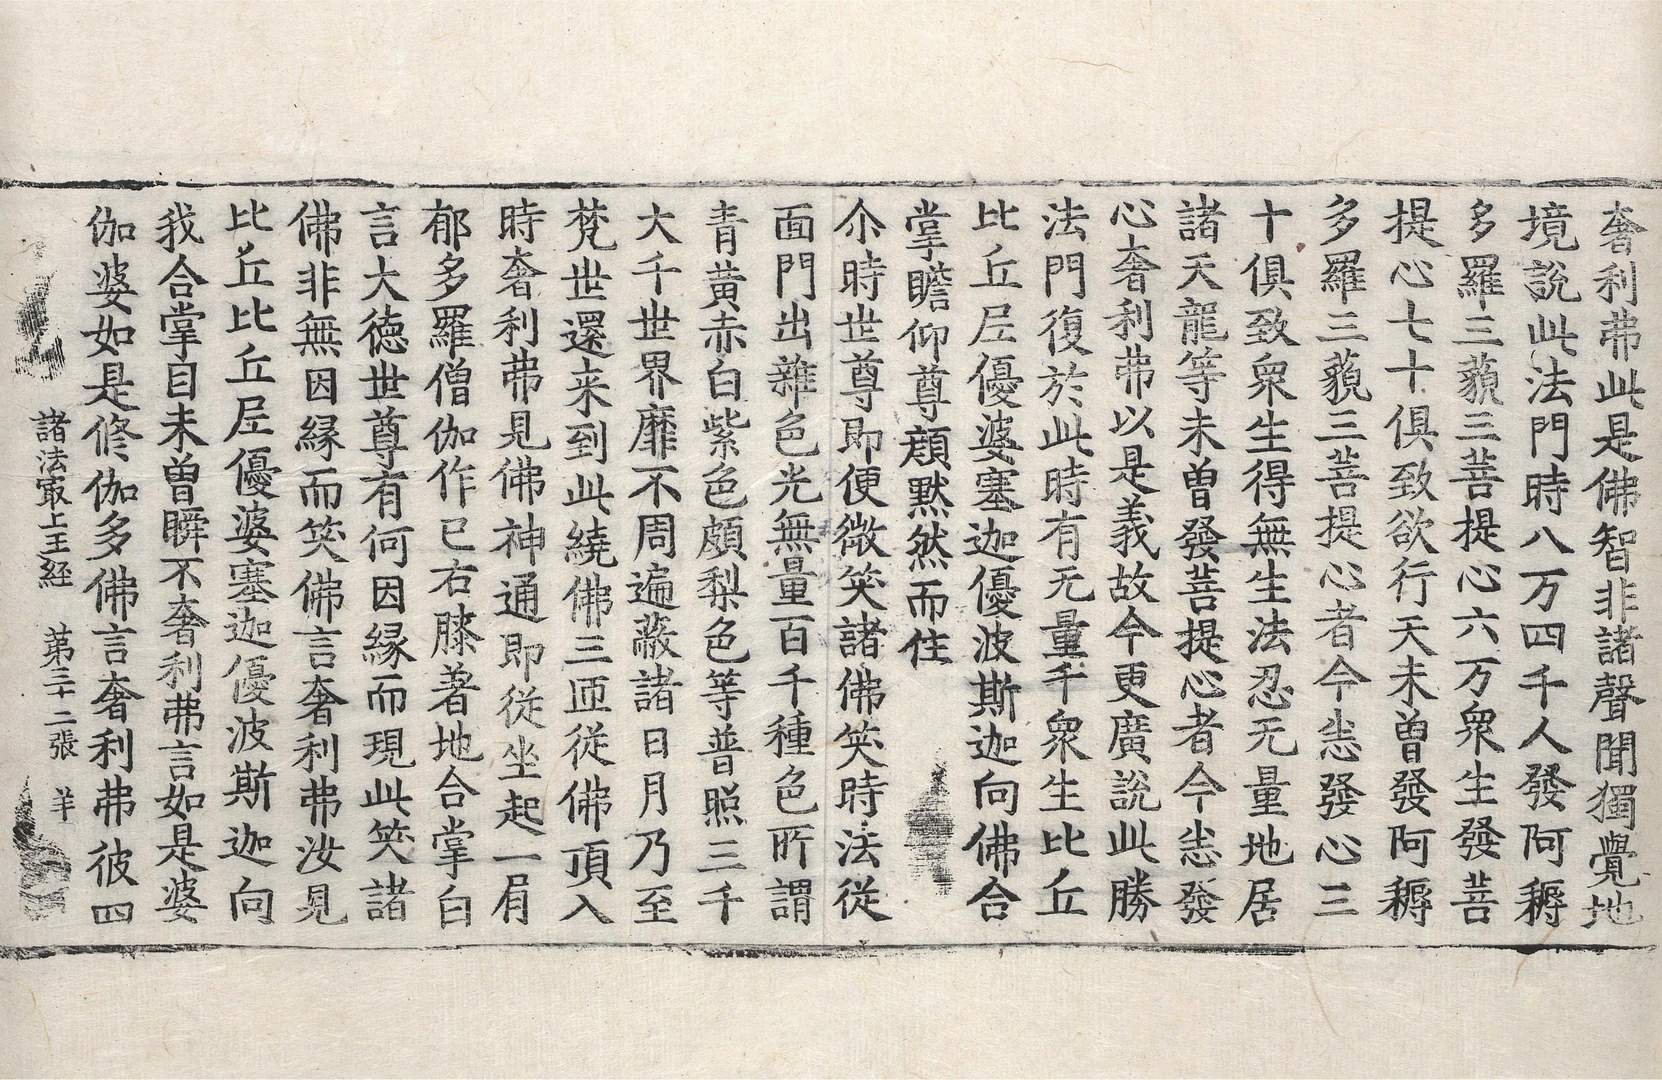 奢利弗此是佛智非諸聲聞獨覺地
境說此法門時八万四千人發阿耨
多羅三藐三菩提心六万衆生發菩
提心七十俱致欲行天未曾發阿耨
多羅三藐三菩提心者今悉發心三
十俱致衆生得無生法忍无量地居
諸天龍等未曾發菩提心者今悉發
心奢利弗以是義故今更廣說此勝
法門復於此時有无量千衆生比丘
比丘尼優婆塞迦優波斯迦向佛合
掌瞻仰尊顔默然而住
尒時世尊即便微笑諸佛笑時法從
面門出雜色光無量百千種色所謂
青黃赤白紫色頗梨色等普照三千
大千世界靡不周遍蔽諸日月乃至
梵世還来到此繞佛三匝從佛頂入
時奢利弗見佛神通即從坐起一肩
郁多羅僧伽作已右膝著地合掌白
言大德世尊有何因緣而現此笑諸
佛非無因緣而笑佛言奢利弗汝見
比丘比丘尼優婆塞迦優波斯迦向
我合掌目未曾瞬不奢利弗言如是婆
伽婆如是修伽多佛言奢利弗彼四
諸法冣上王経 第三十二張 羊